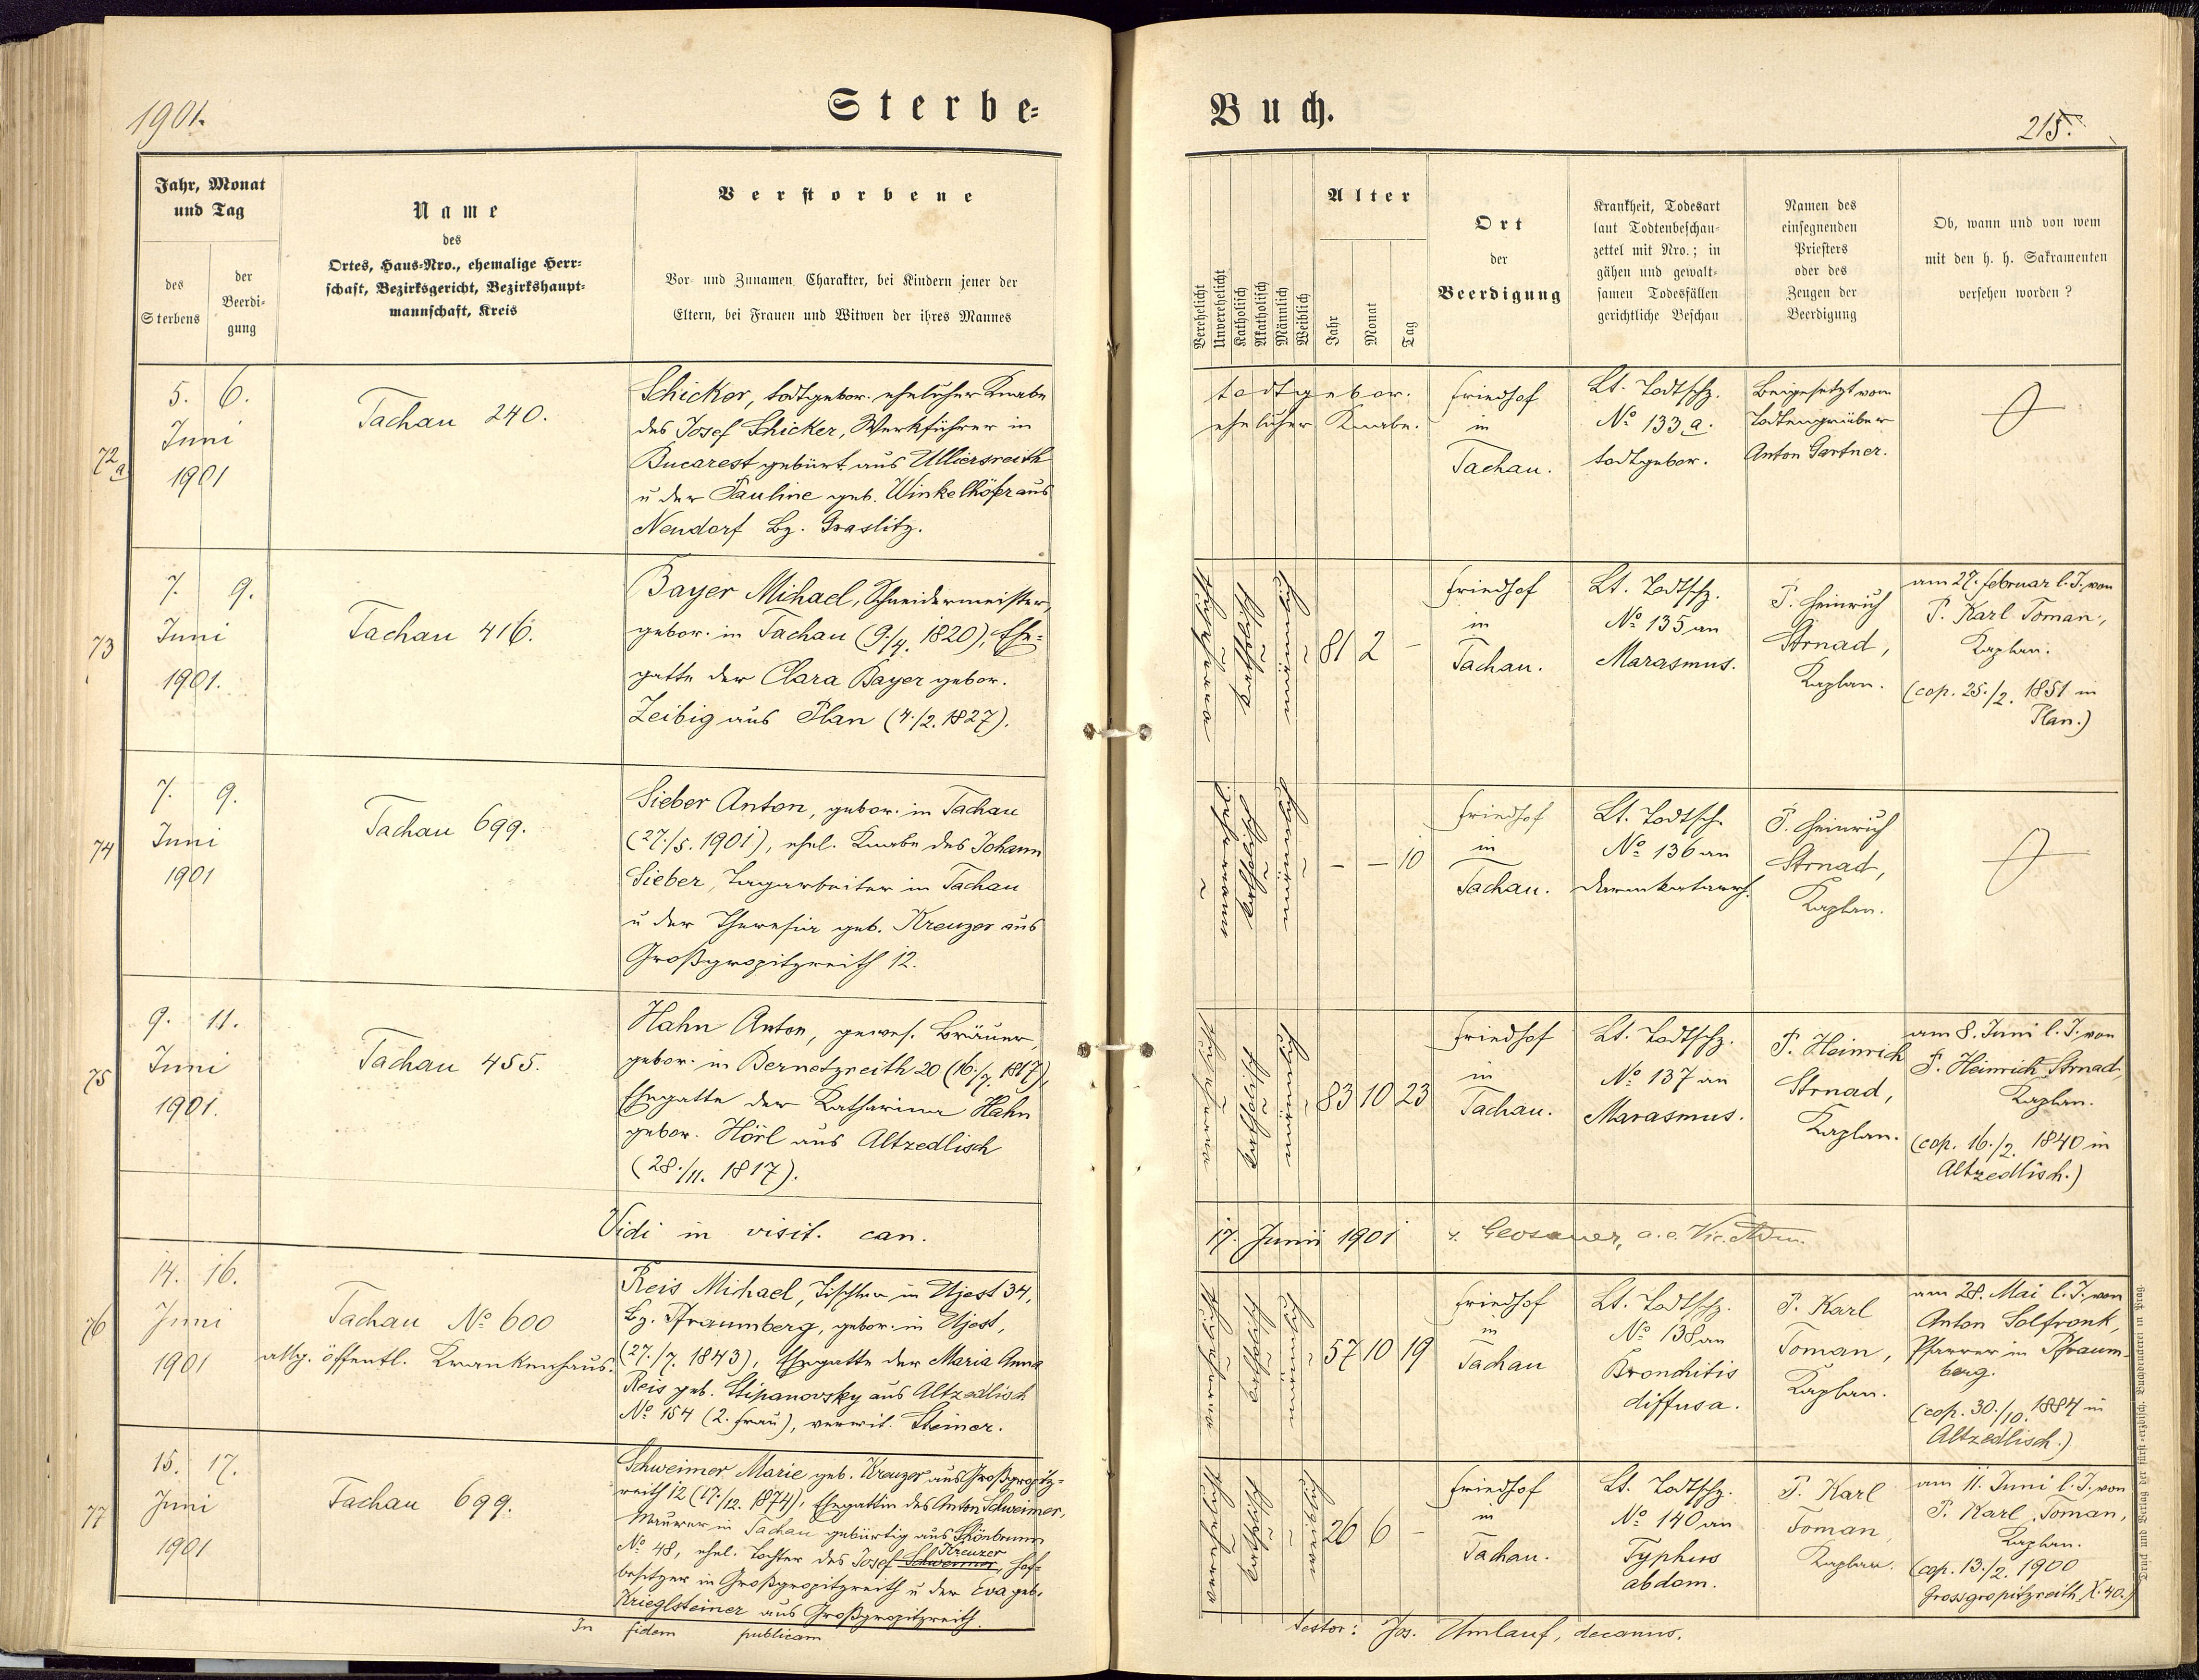 1901.
Sterbe=
Jahr, Monat
und Tag
des
Sterbens
der
Beerdi-
gung
Name
des
Ortes, Haus-Nro., ehemalige Herr-
schaft, Bezirksgericht, Bezirkshaupt-
mannschaft, Kreis
Verstorbene
Vor- und Zunamen, Charakter, bei Kindern jener der
Eltern, bei Frauen und Witwen der ihres Mannes
72a
5. 6.
Juni
1901
Tachau 240.
Schicker, todtgebor. ehelicher Knabe
des Josef Schicker, Werkführer in
Bucarest gebürt. aus Ulliersreith
u der Pauline geb. Winkelhöfer aus
Neudorf Bz. Graslitz.
73
7. 9.
Juni
1901.
Tachau 416.
Bayer Michael, Schneidermeister,
gebor. in Tachau (9./4. 1820), Ehe-
gatte der Clara Bayer gebor.
Zeibig aus Plan (4./2. 1827).
74
7. 9.
Juni
1901
Tachau 699.
Sieber Anton, gebor. in Tachau
(27./5. 1901), ehel. Knabe des Johann
Sieber, Tagarbeiter in Tachau
u der Theresia geb. Kreuzer aus
Großgropitzreith 12.
75
9. 11.
Juni
1901.
Tachau 455.
Hahn Anton, gewes. Bräuer,
gebor. in Bernetzreith 20 (16./7. 1817),
Ehegatte der Katharina Hahn
gebor. Hörl aus Altzedlisch
(28./11. 1817).
Vidi in visit. can.
76
14. 16.
Juni
1901
Tachau № 600
allg. öffentl. Krankenhaus.
Reis Michael, Tischler in Ujest 34,
Bz. Pfraumberg, gebor. in Ujest,
(27./7. 1843), Ehegatte der Maria Anna
Reis geb. Stipanovsky aus Altzedlisch
№ 154 (2. Frau), verwit. Steiner.
77
15. 17.
Juni
1901
Tachau 699.
Schweimer Marie geb. Kreuzer aus Großgropitz-
reith 12 (17./12. 1874), Ehegattin des Anton Schweimer,
Maurer in Tachau gebürtig aus Schönbrunn
№ 48, ehel. Tochter des Josef Schweimer Kreuzer, Hof-
besitzer in Großgropitzreith u der Eva geb.
Krieglsteiner aus Großgropitzreith.
In fidem publicam
Buch.
215.
Verehelicht
Unverehelicht
Katholisch
Akatholisch
Männlich
Weiblich
Alter
Jahr
Monat
Tag
Ort
der
Beerdigung
Krankheit, Todesart
laut Todtenbeschau-
zettel mit Nro.; in
gähen und gewalt-
samen Todesfällen
gerichtliche Beschau
Namen des
einsegnenden
Priesters
oder des
Zeugen der
Beerdigung
Ob, wann und von wem
mit den h. h. Sakramenten
versehen worden?
todtgebor.
ehelicher Knabe.
Friedhof
in
Tachau.
Lt. Todtschz.
№ 133 a.
todtgebor.
Beigesetzt vom
Todtengräber
Anton Gartner.
katholisch
männlich
81 2 -
Friedhof
in
Tachau.
Lt. Todtschz.
№ 135 an
Marasmus.
P. Heinrich
Strnad,
Kaplan.
am 27. Februar l. J. von
P. Karl Toman,
Kaplan.
(cop. 25./2. 1851 in
Plan.)
katholisch
männlich
- - 10
Friedhof
in
Tachau.
Lt. Todtsch.
№ 136 an
Darmkatarrh.
P. Heinrich
Strnad,
Kaplan.
katholisch
männlich
83 10 23
Friedhof
in
Tachau.
Lt. Todtschz.
№ 137 an
Marasmus.
P. Heinrich
Strnad,
Kaplan.
am 8. Juni l. J. von
P. Heinrich Strnad,
Kaplan.
(cop. 16./2. 1840 in
Altzedlisch.)
17. Junii 1901
katholisch
männlich
57 10 19
Friedhof
in
Tachau
Lt. Todtschz.
№ 138 an
Bronchitis
diffusa.
P. Karl
Toman,
Kaplan.
am 28. Mai l. J. von
Anton Solfronk,
Pfarrer in Pfraum-
berg.
(cop. 30./10. 1884 in
Altzedlisch.)
katholisch
weiblich
26 6 -
Friedhof
in
Tachau.
Lt. Todtschz.
№ 140 an
Typhus
abdom.
P. Karl
Toman,
Kaplan.
am 11. Juni l. J. von
P. Karl Toman,
Kaplan.
(cop. 13./2. 1900
Grossgropitzreith X. 40.)
testor: Jos. Umlauf, decanus.
Druck und Verlag der fürst-erzbisch. Buchdruckerei in Prag.